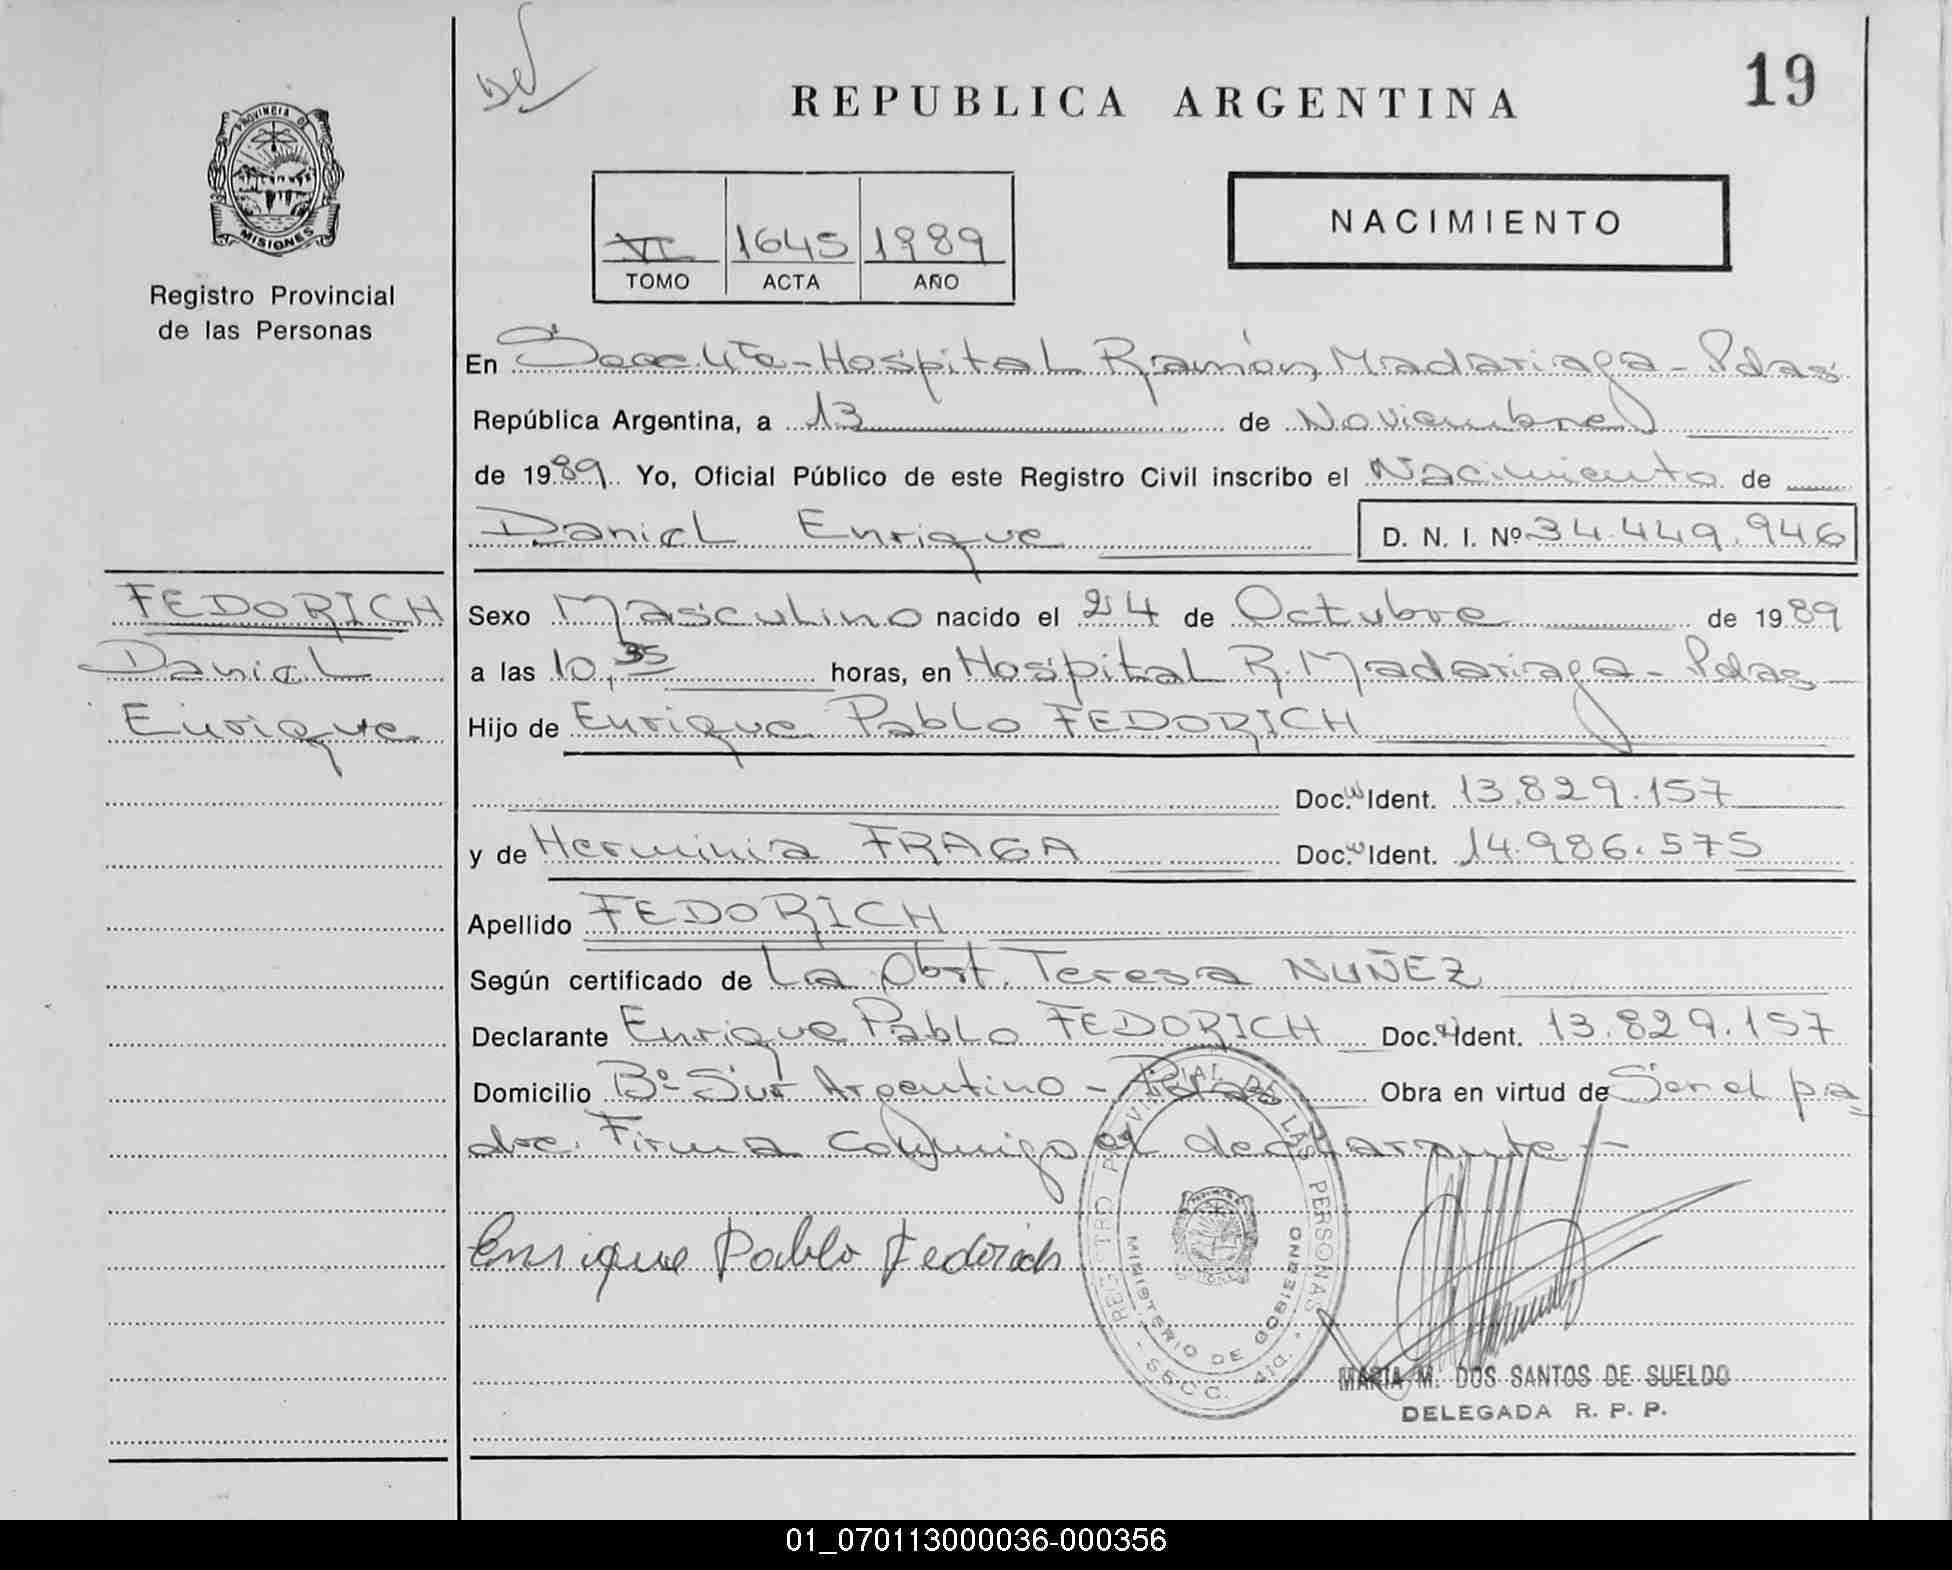 REPUBLICA ARGENTINA
19
PROVINCIA DE
MISIONES
Registro Provincial
de las Personas
VI 1645 1989
TOMO ACTA AÑO
NACIMIENTO
En Secc. 4ta - Hospital Ramón Madariaga - Pdas
República Argentina, a 13 de Noviembre
de 1989. Yo, Oficial Público de este Registro Civil inscribo el Nacimiento de
Daniel Enrique D. N. I. Nº 34.449.946
FEDORICH
Daniel
Enrique
Sexo Masculino nacido el 24 de Octubre de 1989
a las 10,35 horas, en Hospital R. Madariaga - Pdas
Hijo de Enrique Pablo FEDORICH
Doc. Ident. 13.829.157
y de Herminia FRAGA Doc. Ident. 14.986.575
Apellido FEDORICH
Según certificado de La Obst. Teresa NUÑEZ
Declarante Enrique Pablo FEDORICH Doc. Ident. 13.829.157
Domicilio Bº Sur Argentino - Pdas Obra en virtud de Ser el pa=
dre. Firma conmigo el declarante -
Enrique Pablo Fedorich
REGISTRO PROVINCIAL DE LAS PERSONAS
MINISTERIO DE GOBIERNO
SECC. 4ta.
MARIA M. DOS SANTOS DE SUELDO
DELEGADA R. P. P.
01_070113000036-000356